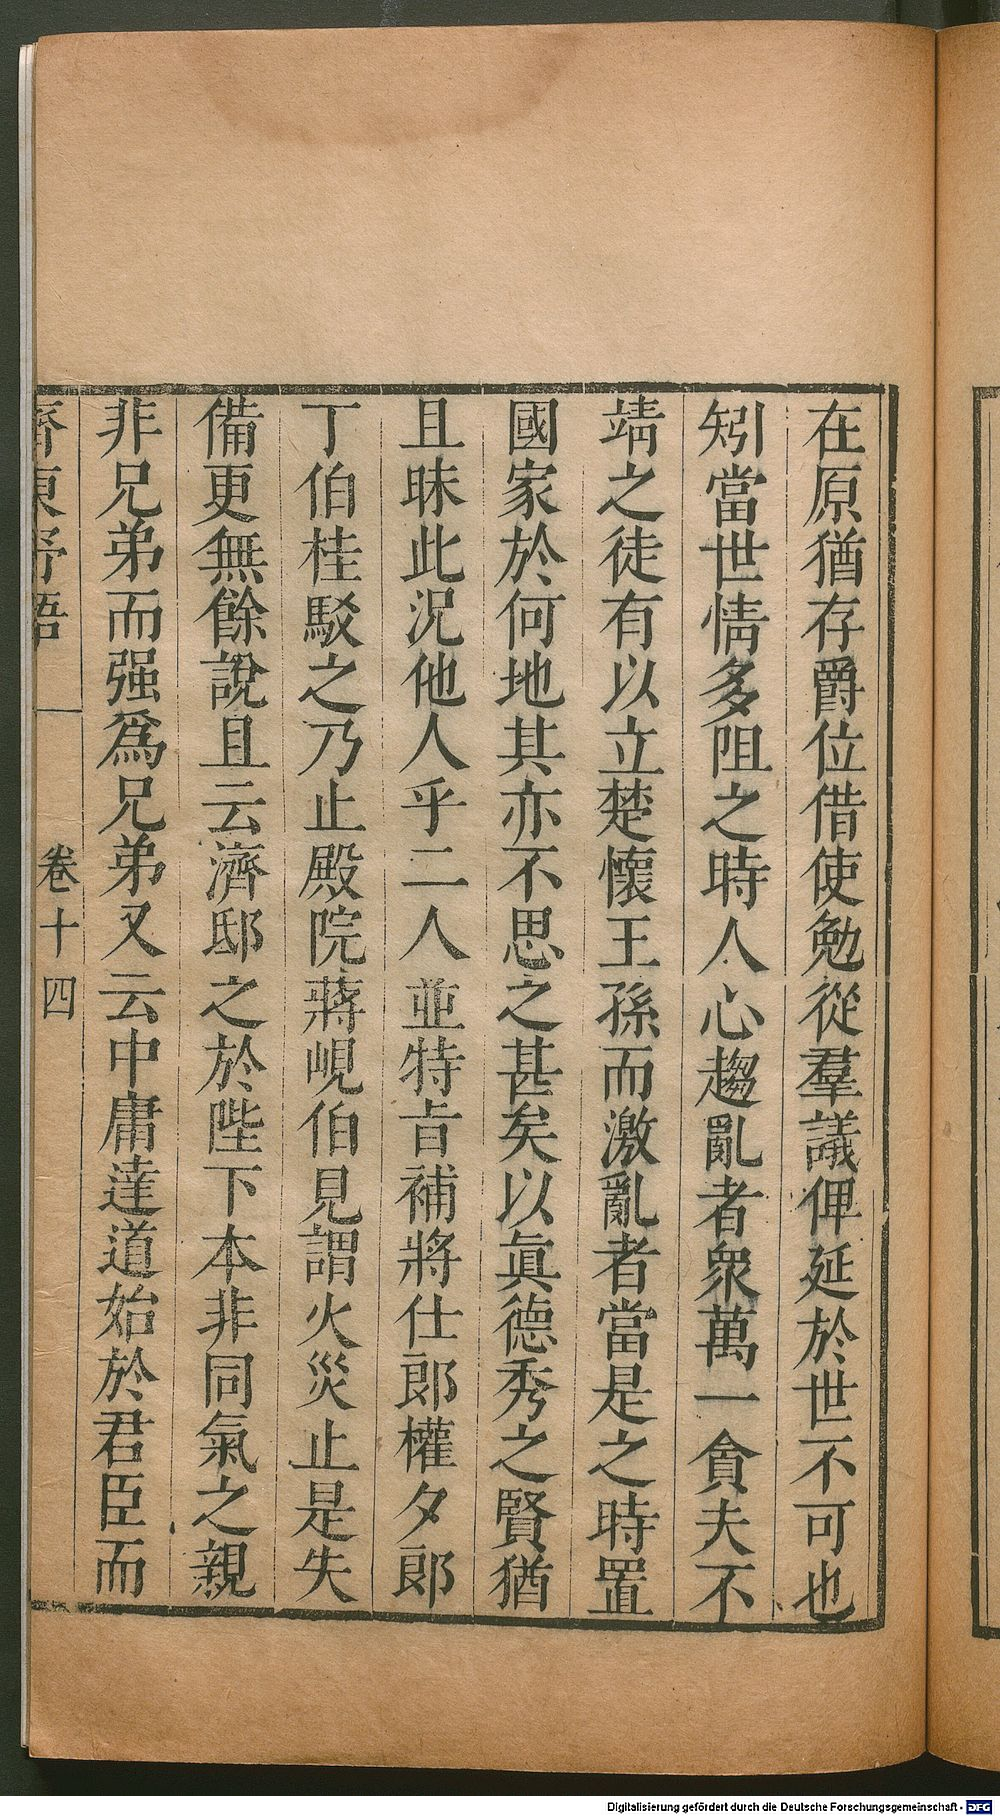 在原猶存爵位借使勉從羣議俾延於世不可也
矧當世情多阻之時人心趨亂者衆萬一貪夫不
靖之徒有以立楚懷王孫而激亂者當是之時置
國家於何地其亦不思之甚矣以眞德秀之賢猶
且昧此況他人乎二人並特旨補將仕郎權夕郎
丁伯桂駁之乃止殿院蔣峴伯見謂火災止是失
備更無餘說且云濟邸之於陛下本非同氣之親
非兄弟而强爲兄弟又云中庸達道始於君臣而
齊東野語
卷十四
Digitalisierung gefördert durch die Deutsche Forschungsgemeinschaft - DFG